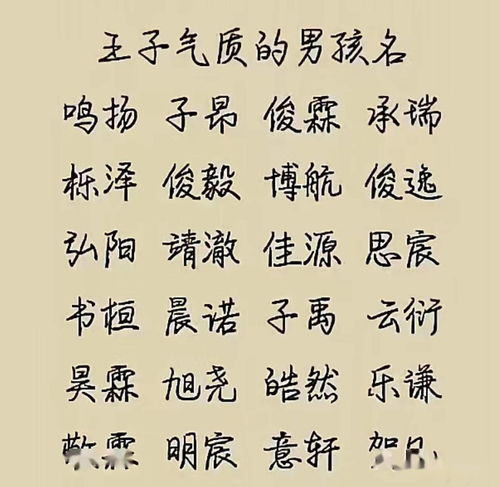 王子气质的男孩名
鸣扬 子昂 俊霖 承瑞
栎泽 俊毅 博航 俊逸
弘阳 靖澈 佳源 思宸
书桓 晨诺 子禹 云衍
昊霖 旭尧 皓然 乐谦
敬霖 明宸 意轩